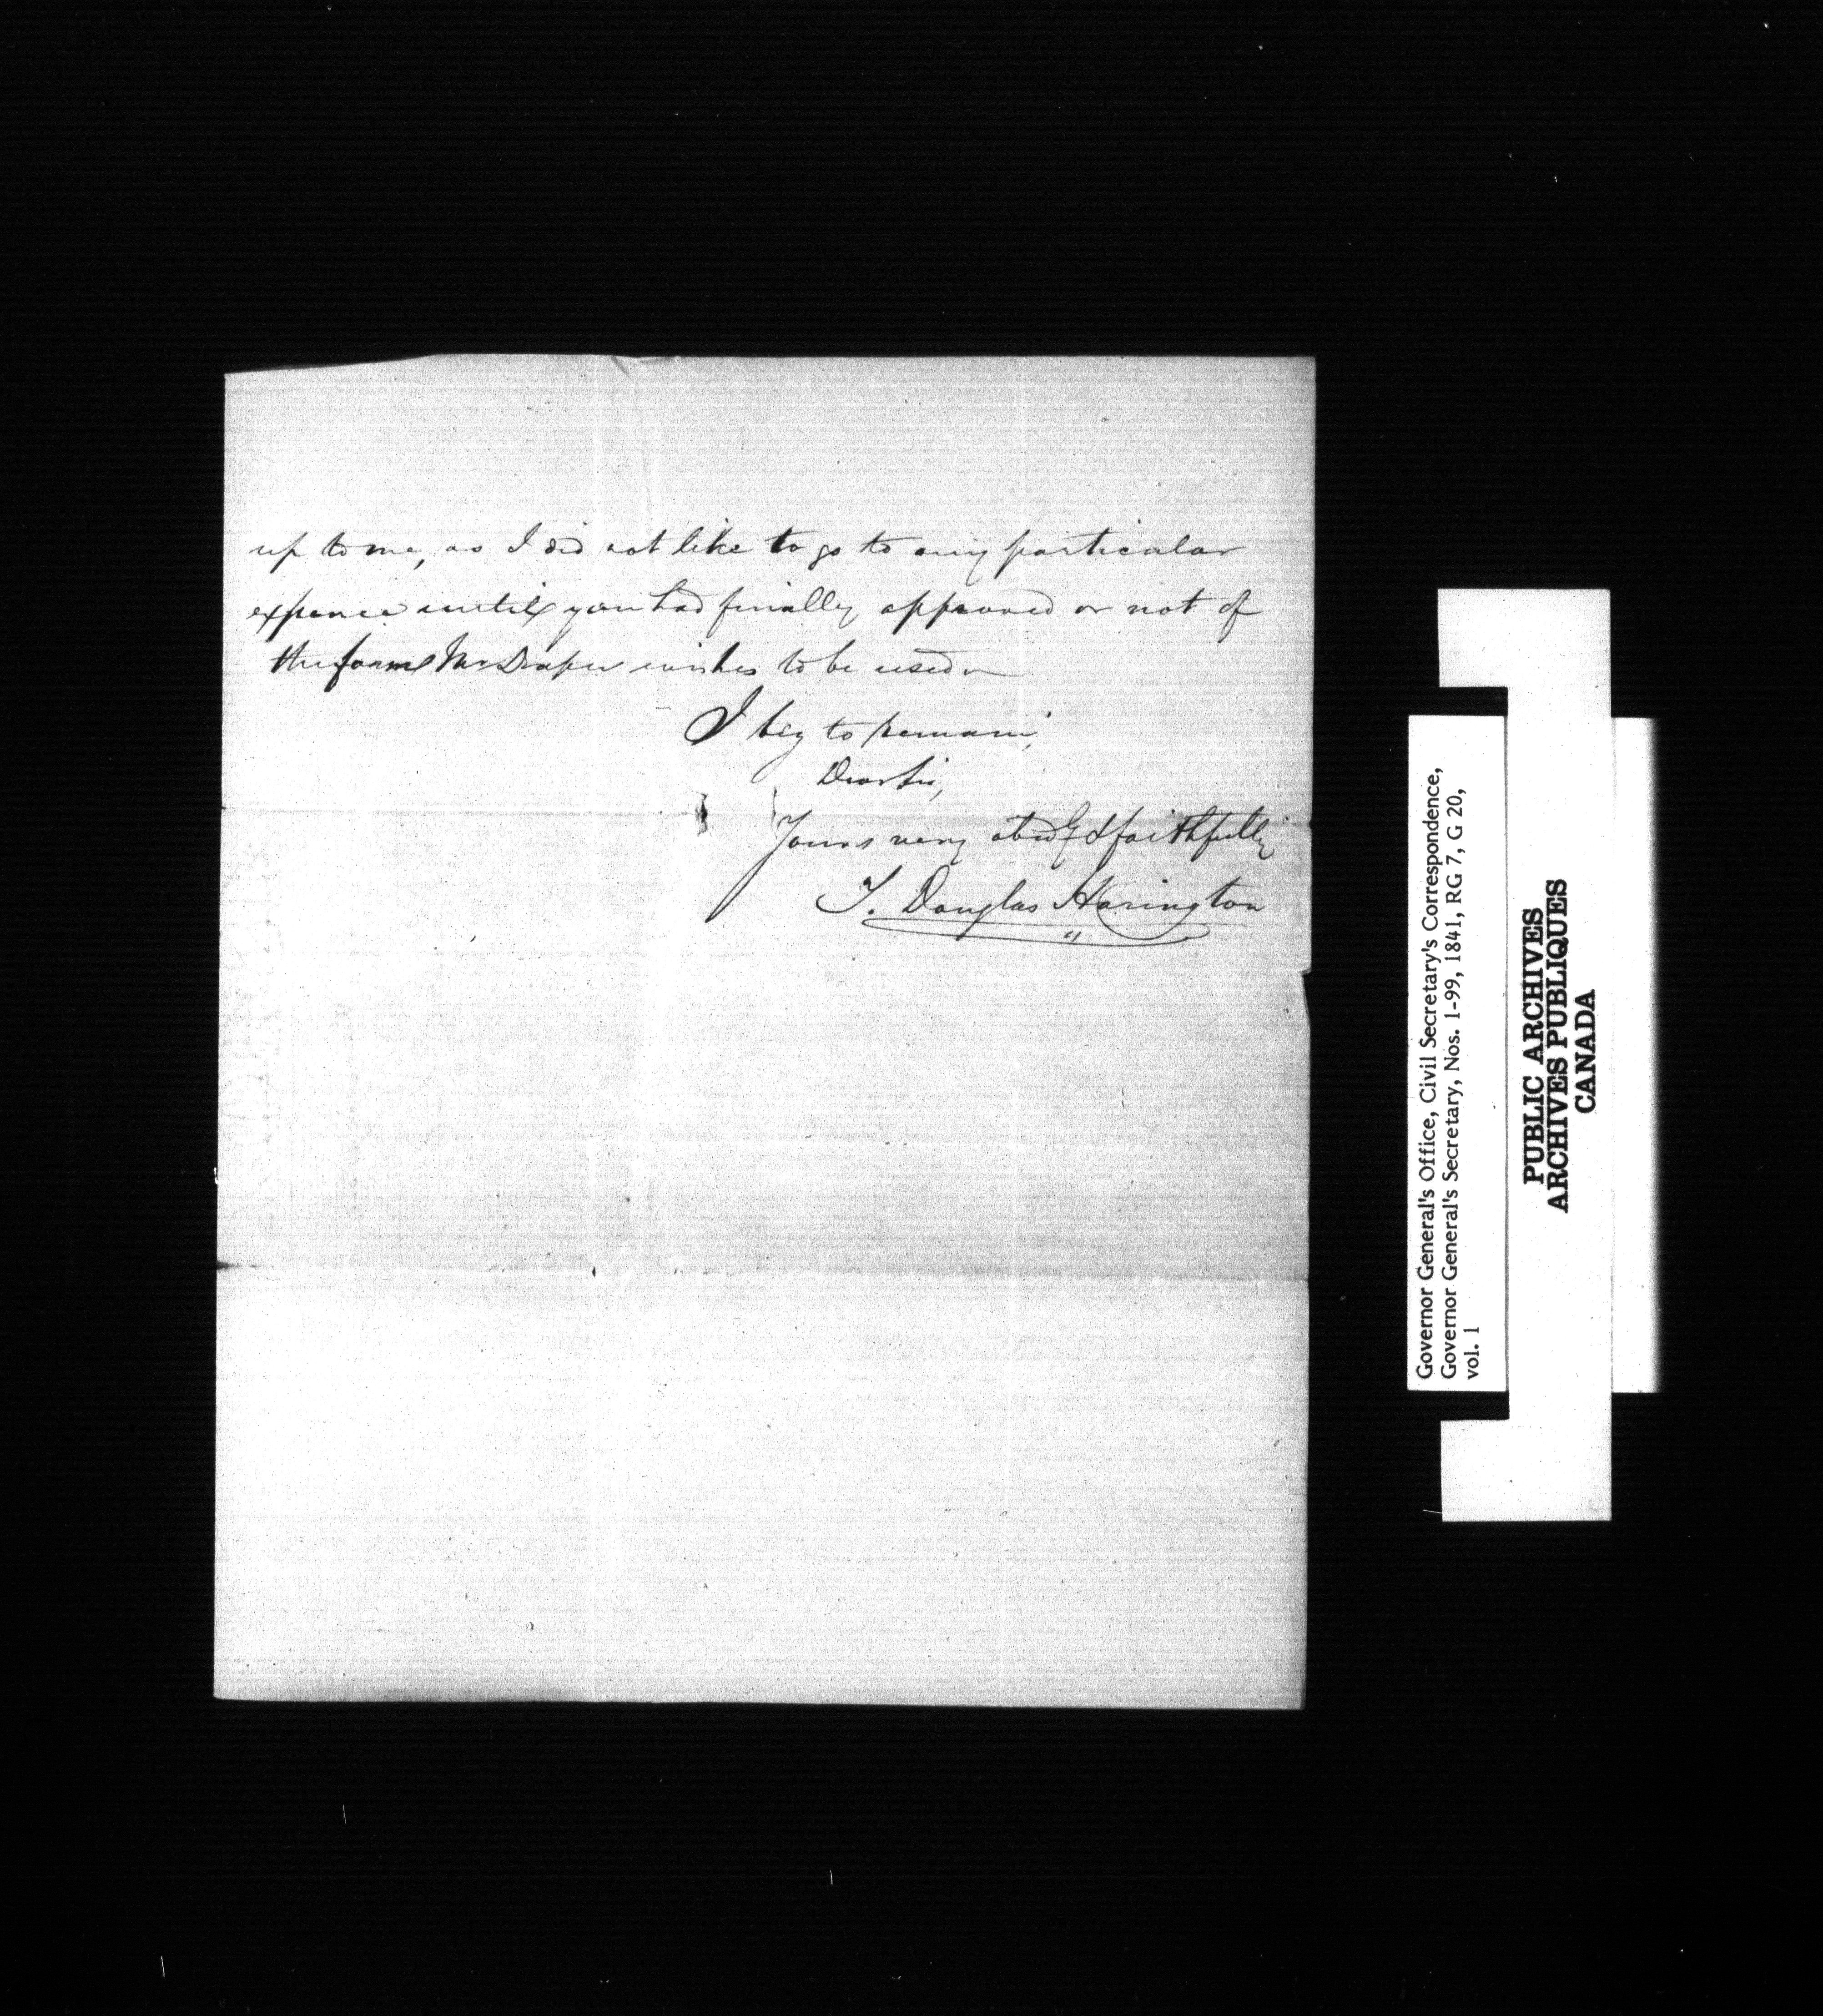 up to me, as I did not like to go to any particular
expence until you had finally approved or not of
the form Mr Draper wishes to be used
I beg to remain,
Dear Sir,
Yours very obedly & faithfully
T. Douglas Harington
Governor General's Office, Civil Secretary's Correspondence,
Governor General's Secretary, Nos. 1-99, 1841, RG 7, G 20,
vol. 1
PUBLIC ARCHIVES
ARCHIVES PUBLIQUES
CANADA